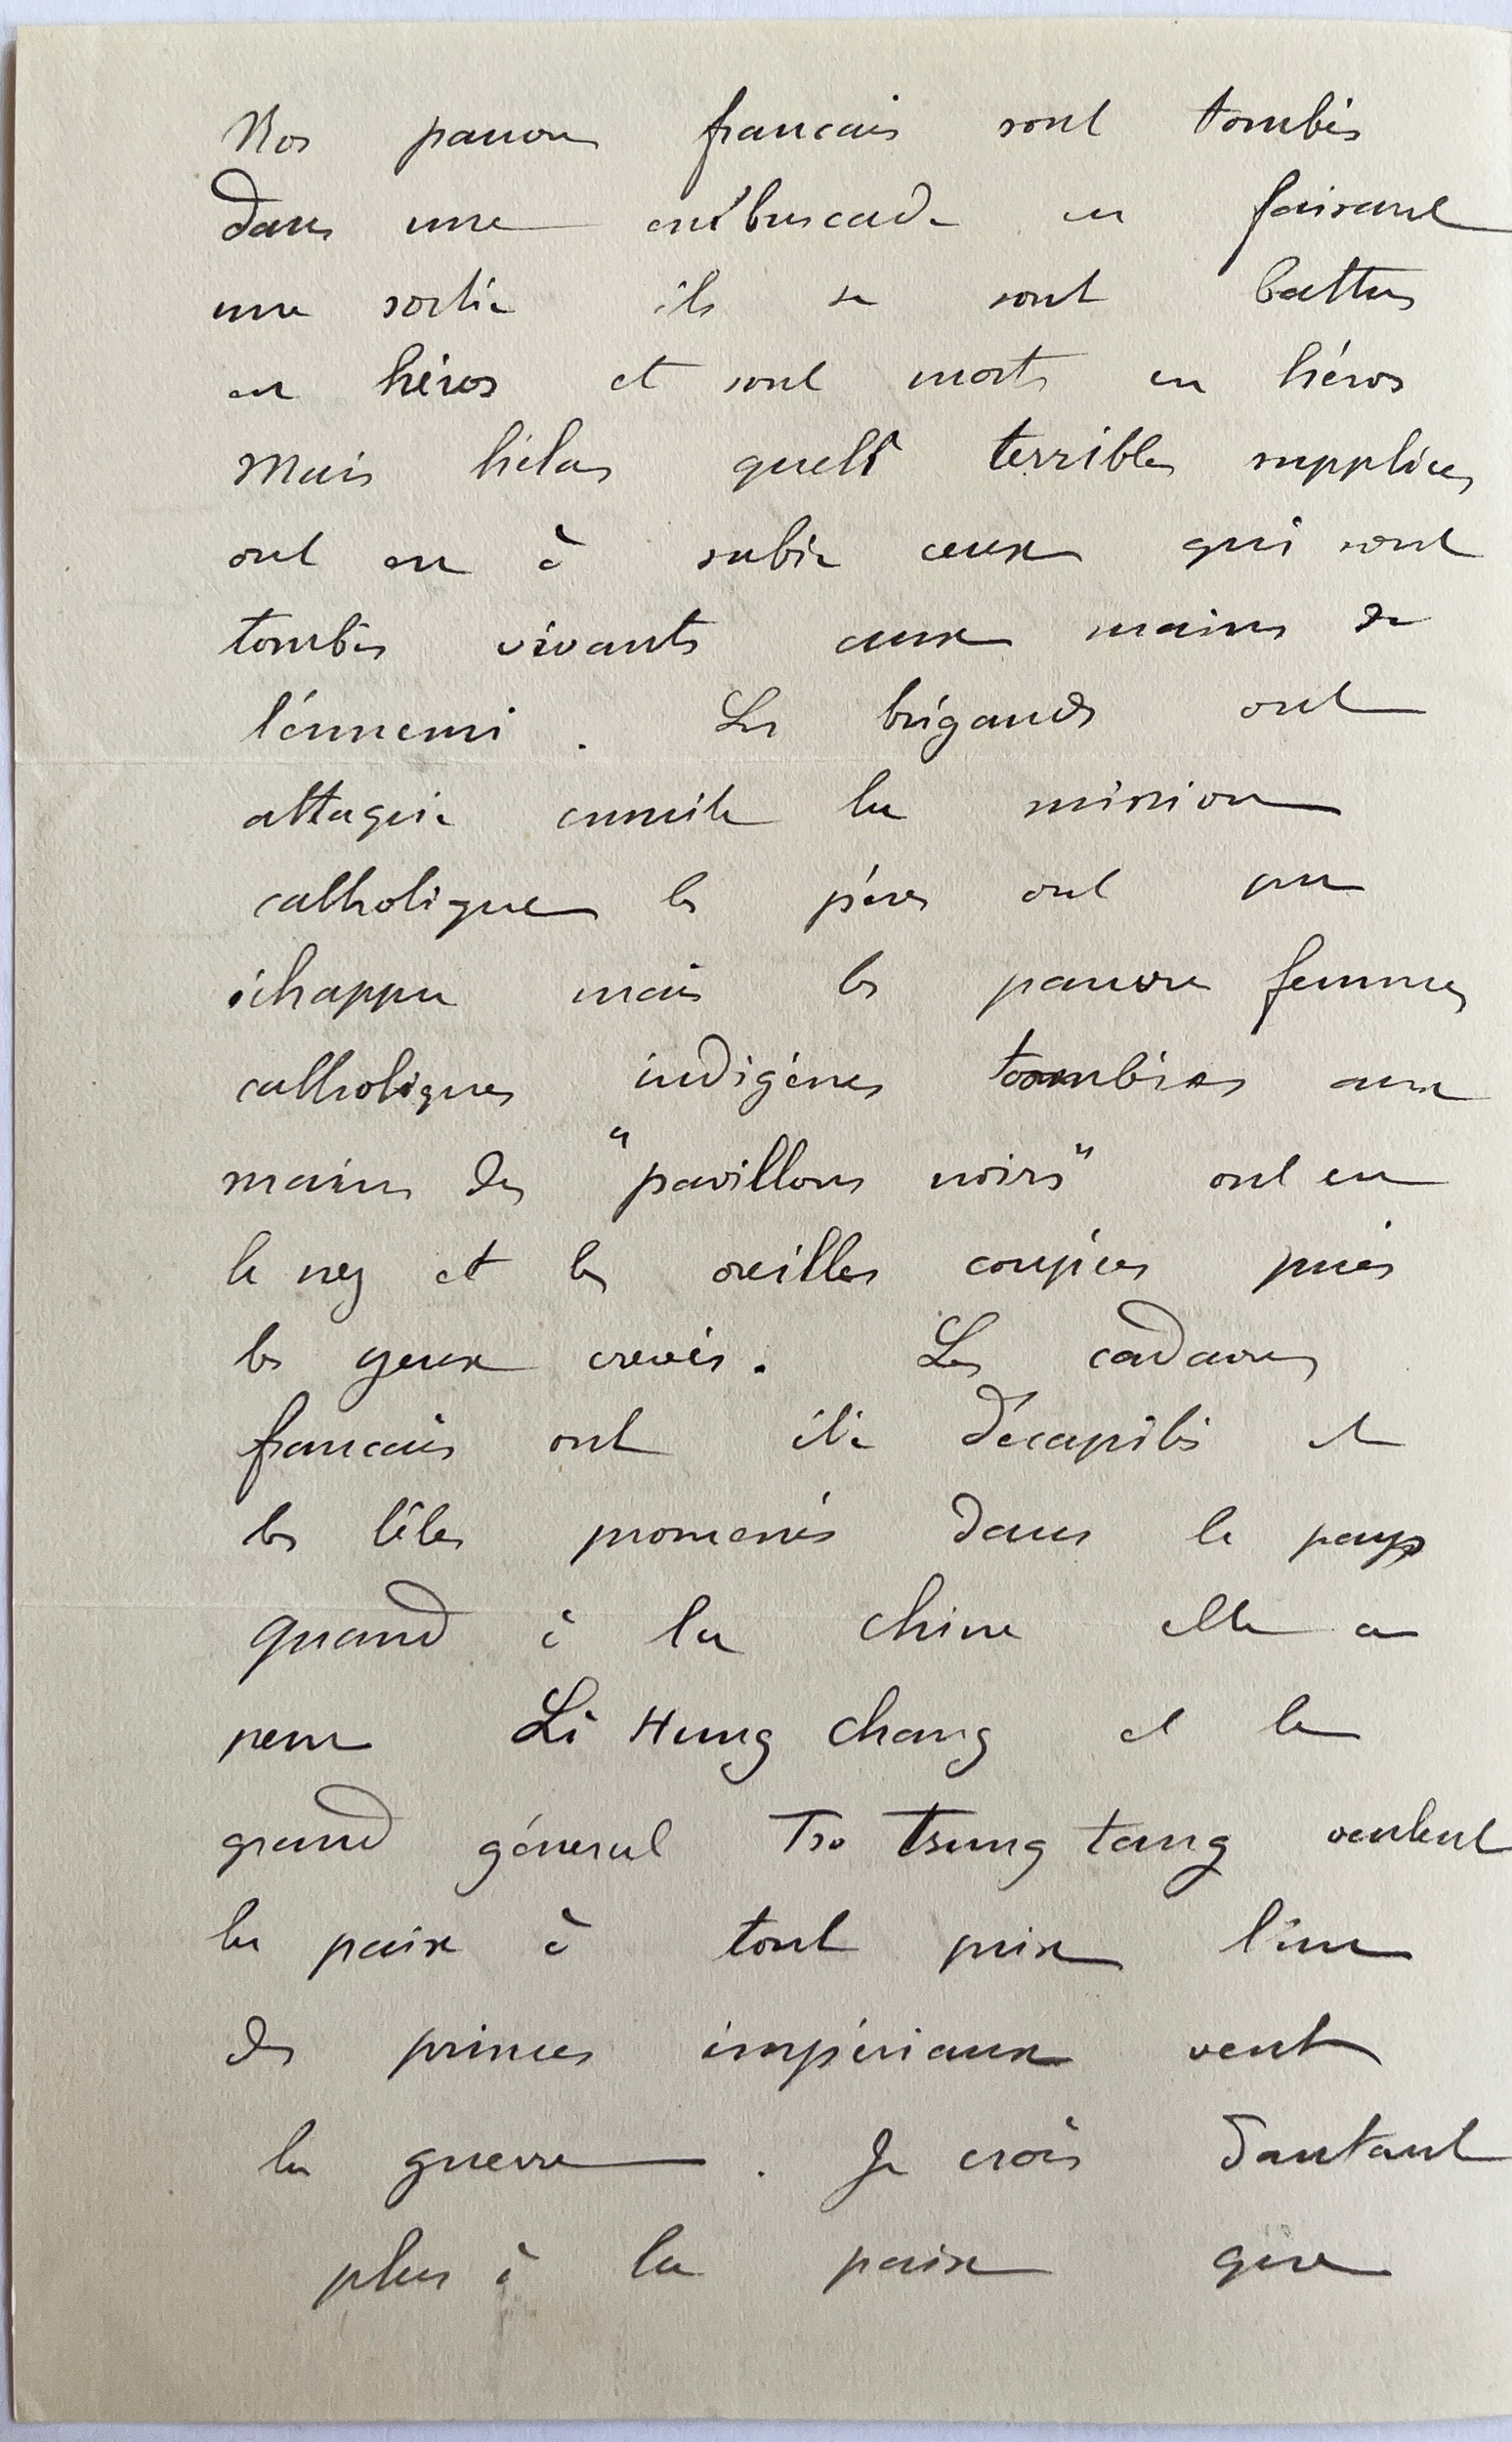 Nos pauvres francais sont tombés
dans une embuscade en faisant
une sortie ils se sont battus
en héros et sont morts en héros
Mais hélas quels terribles supplices
ont eu à subir ceux qui sont
tombés vivants aux mains de
l'énnemi . Les brigands ont
attaqué ensuite la mission
catholique les pères ont pu
échapper mais les pauvres femmes
catholiques indigénes tombées aux
mains des "pavillons noirs" ont eu
le nez et les oreilles coupées puis
les yeux crevés. Les cadavres
francais ont été décapités et
les têtes promenés dans le pays
quand à la chine elle a
peur Li Hung Chang et le
grand géneral Tso Tsung tang veulent
la paix à tout prix l'un
des princes impériaux veut
la guerre . Je crois dautant
plus à la paix que